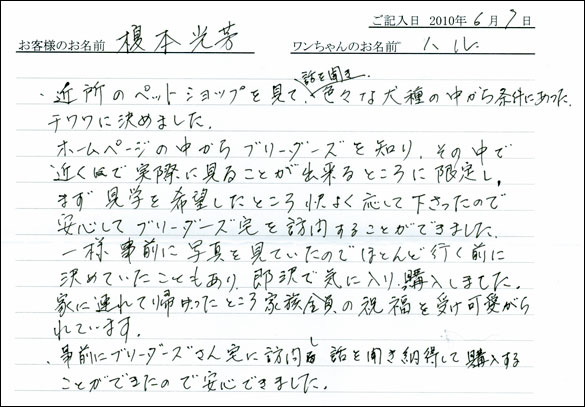 ご記入日 2010年 6月 7日
お客様のお名前 榎本光芳 ワンちゃんのお名前 ハル
・近所のペットショップを見て、話を聞き、色々な犬種の中から条件にあった
チワワに決めました。
ホームページの中からブリーダーズを知り、その中で
近くほで実際に見ることが出来るところに限定し、
まず見学を希望したところ快よく応して下さったので
安心してブリーダーズ宅を訪問することができました。
一様事前に写真を見ていたのでほとんど行く前に
決めていたこともあり、即決で気に入り、購入しました。
家に連れて帰ったところ家族全員の祝福を受け可愛がら
れています。
、事前にブリーダーズさん宅に訪問し話を聞き納得して購入する
ことができたので安心できました。